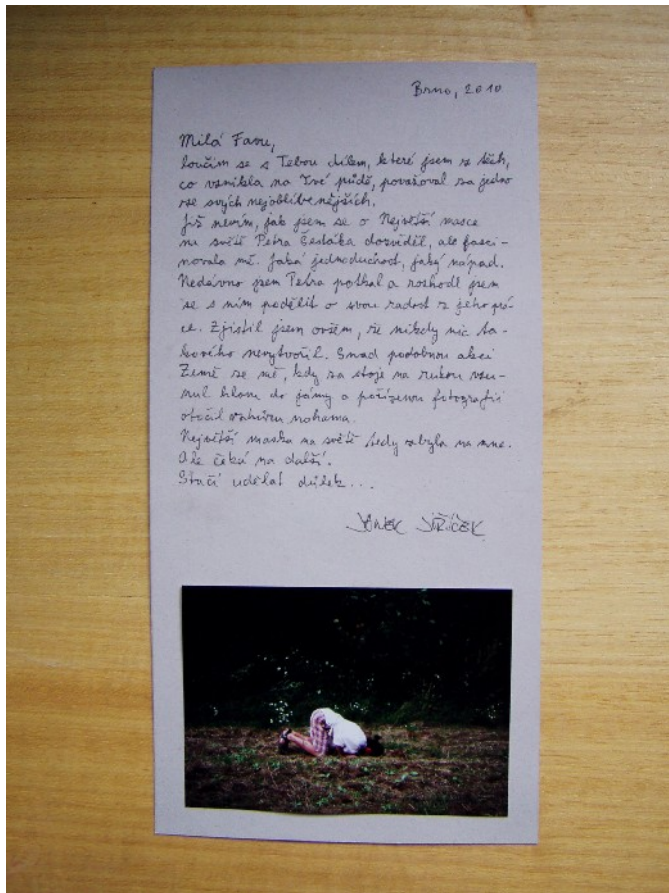 Brno, 2010
Milá Favu,
loučím se s Tebou dílem, které jsem z těch,
co vznikla na Tvé půdě, považoval za jedno
ze svých nejoblíbenějších.
Již nevím, jak jsem se o Největší masce
na světě Petra Čestáka dozvěděl, ale fasci-
novala mě. Jaká jednoduchost, jaký nápad.
Nedávno jsem Petra potkal a rozhodl jsem
se s ním podělit o svou radost z jeho prá-
ce. Zjistil jsem ovšem, že nikdy nic ta-
kového nevytvořil. Snad podobnou akci
Země se mě, kdy za stoje na rukou vsu-
nul hlavu do jámy a pořízenou fotografii
otočil vzhůru nohama.
Největší maska na světě tedy zbyla na mne.
Ale čeká na další.
Stačí udělat důlek...
JANEK JIŘÍČEK